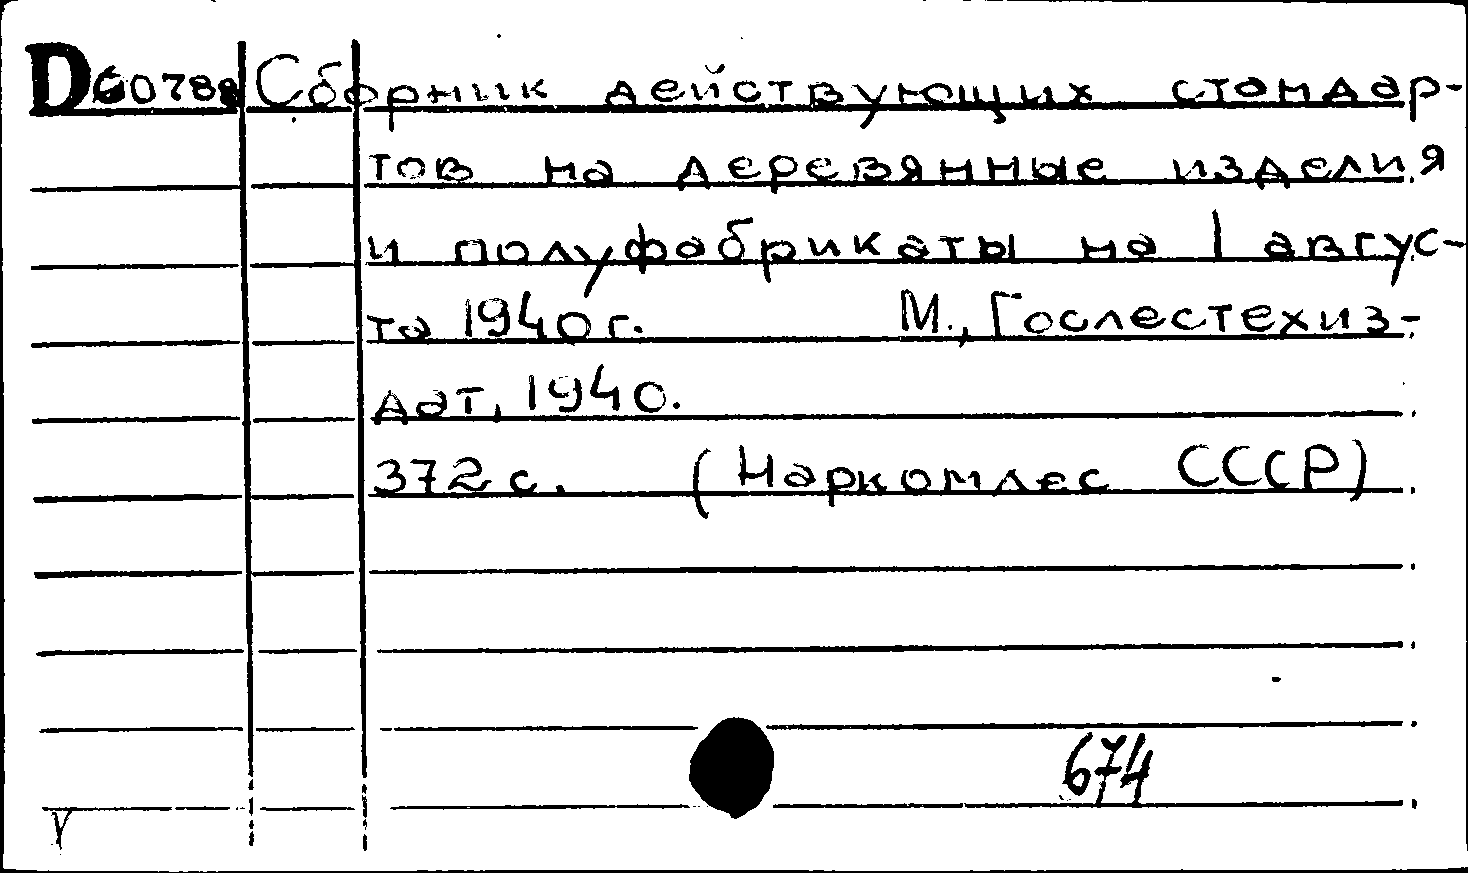 D60788 Сборник действующих стандар-
тов на деревянные изделия
и полуфабрикаты на 1 авгус-
та 1940 г. М., Гослестехиз-
дат, 1940.
372 с. (Наркомлес СССР)
674
V